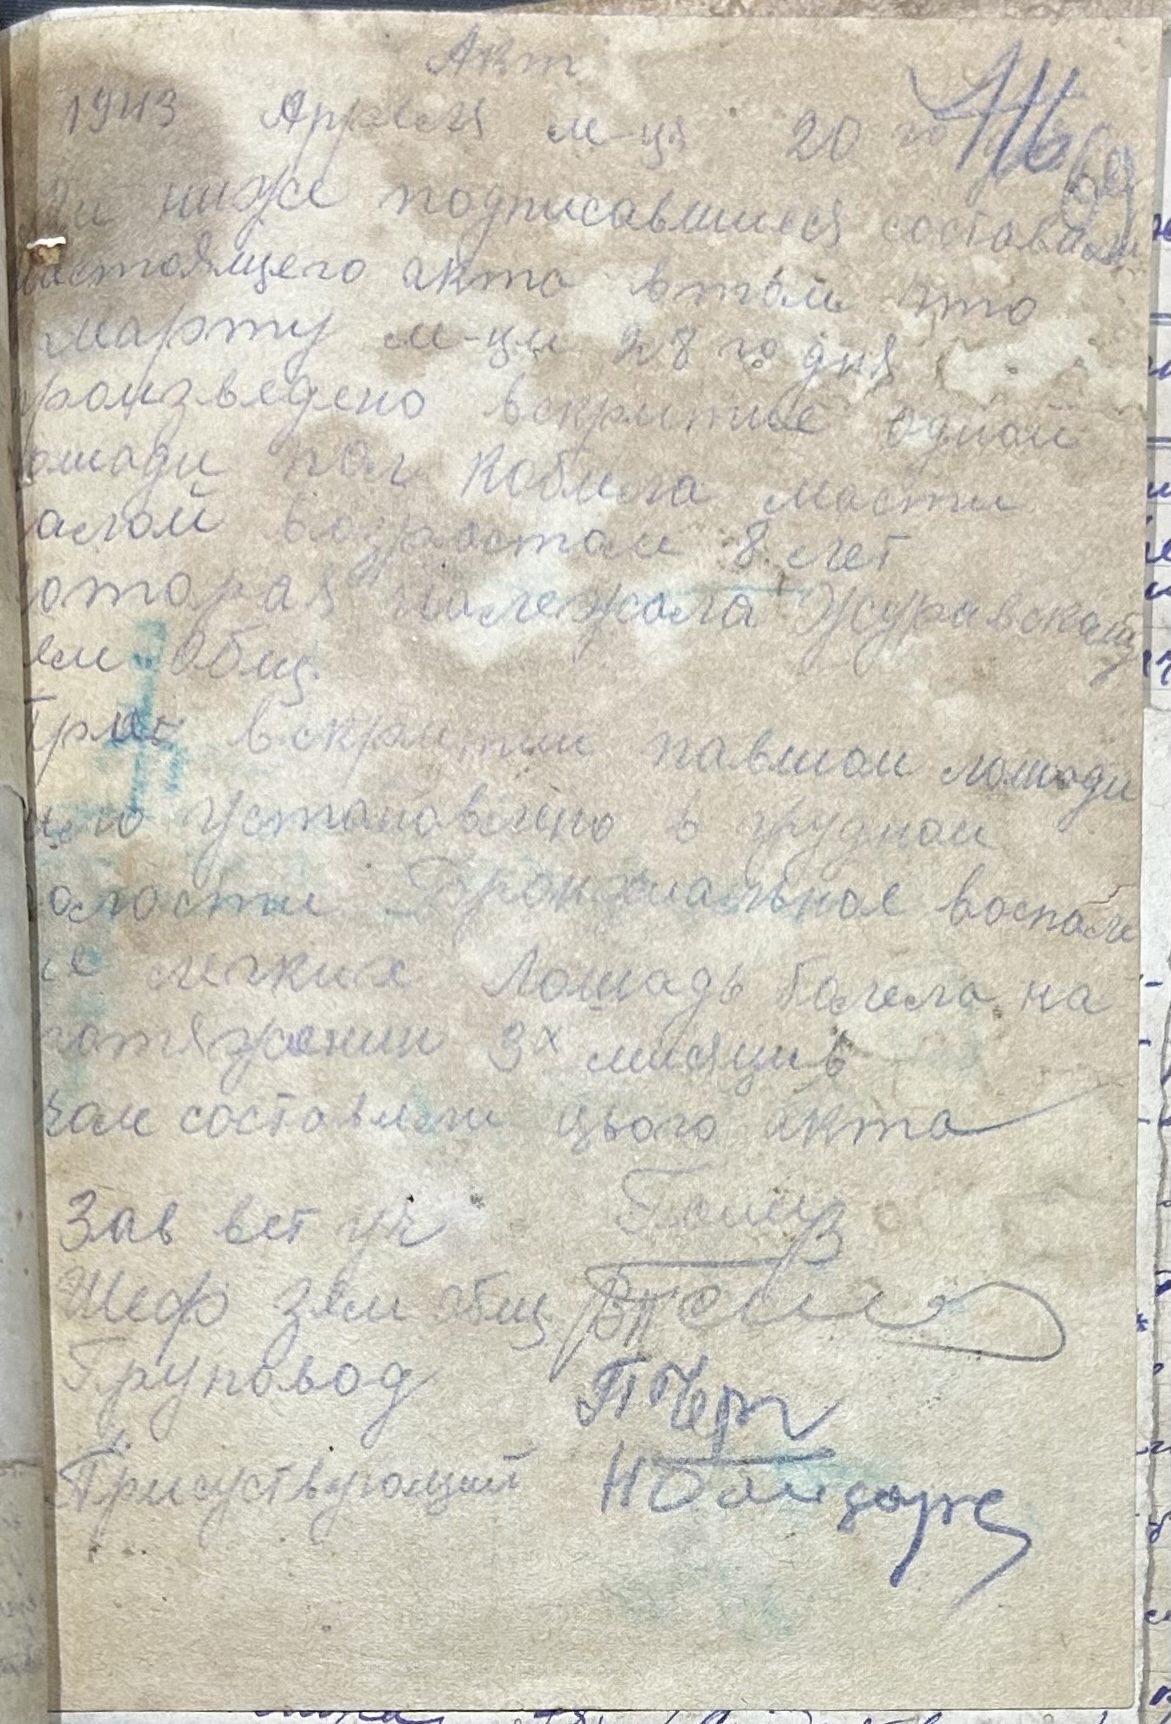 Акт
1943 Апреля м-ця 20 го
116
69
ниже подписавшиеся составили
настоящего акта в том что
марту м-ци 28 го дня
произведено вскрытие одной
лошади пол кобыла масти
возрастом 8 лет
которая належала Журавской
зем общ.
При вскрытии павшой лошади
чего установлено в грудной
полости Бронхиальное воспале
ие легких Лошадь болела на
протяжении 3х мисяцив
чом составлен цього акта
Зав вет уч
Шеф зем общ
Груповод
Присуствующий